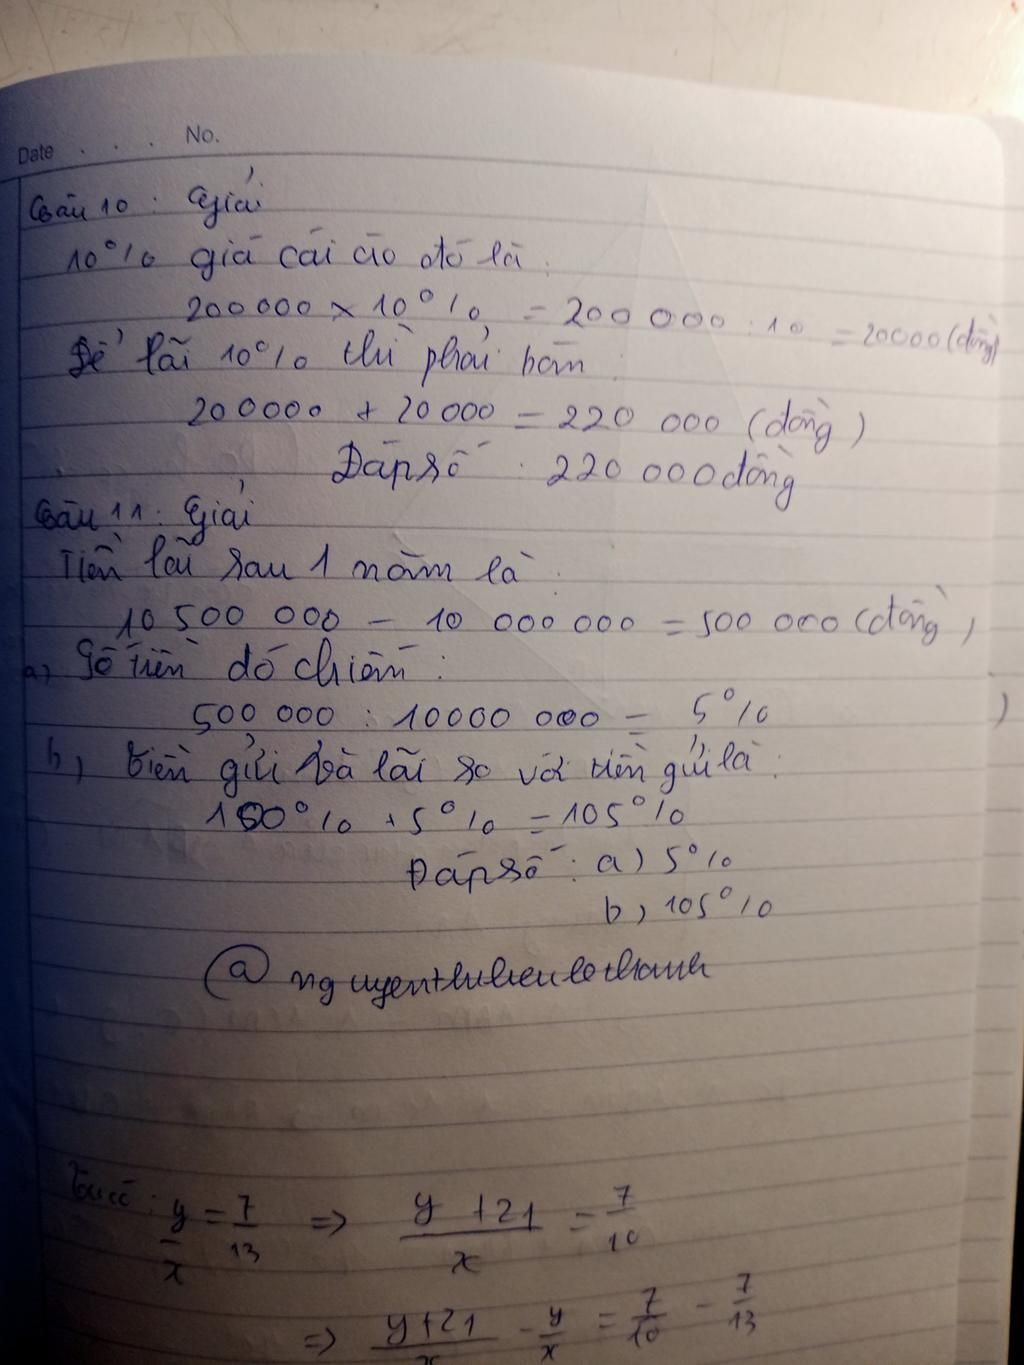 Date . . . No.
Câu 10 : Giải
10% giá cái áo đó là :
200000 x 10% = 200 000 : 10 = 20000 (đồng)
Để lãi 10% thì phải bán :
200000 + 20000 = 220 000 (đồng)
Đáp số : 220 000 đồng
Câu 11 : Giải
Tiền lãi sau 1 năm là :
10 500 000 - 10 000 000 = 500 000 (đồng)
a) Số tiền đó chiếm :
500 000 : 10000 000 = 5%
b) Tiền gửi và lãi so với tiền gửi là :
100% + 5% = 105%
Đáp số : a) 5%
b) 105%
@
Ta có : y/x = 7/13 => y + 21/x = 7/10
=> y+21/x - y/x = 7/10 - 7/13